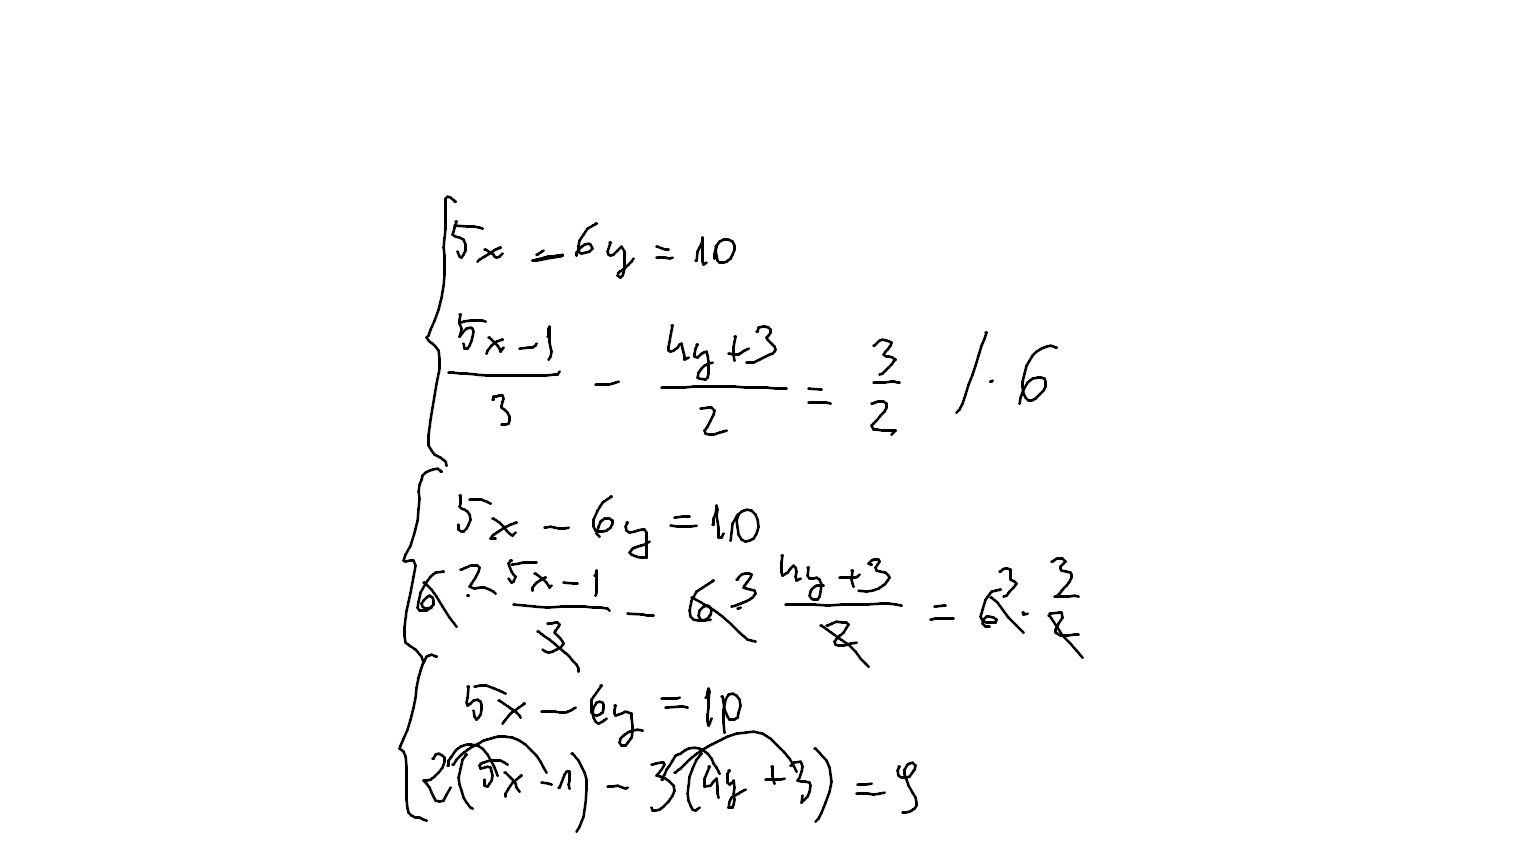 5x - 6y = 10
(5x - 1)/3 - (4y + 3)/2 = 3/2 / · 6
5x - 6y = 10
6 2 (5x - 1)/3 - 6 3 (4y + 3)/2 = 6 3 · 3/2
5x - 6y = 10
2(5x - 1) - 3(4y + 3) = 9